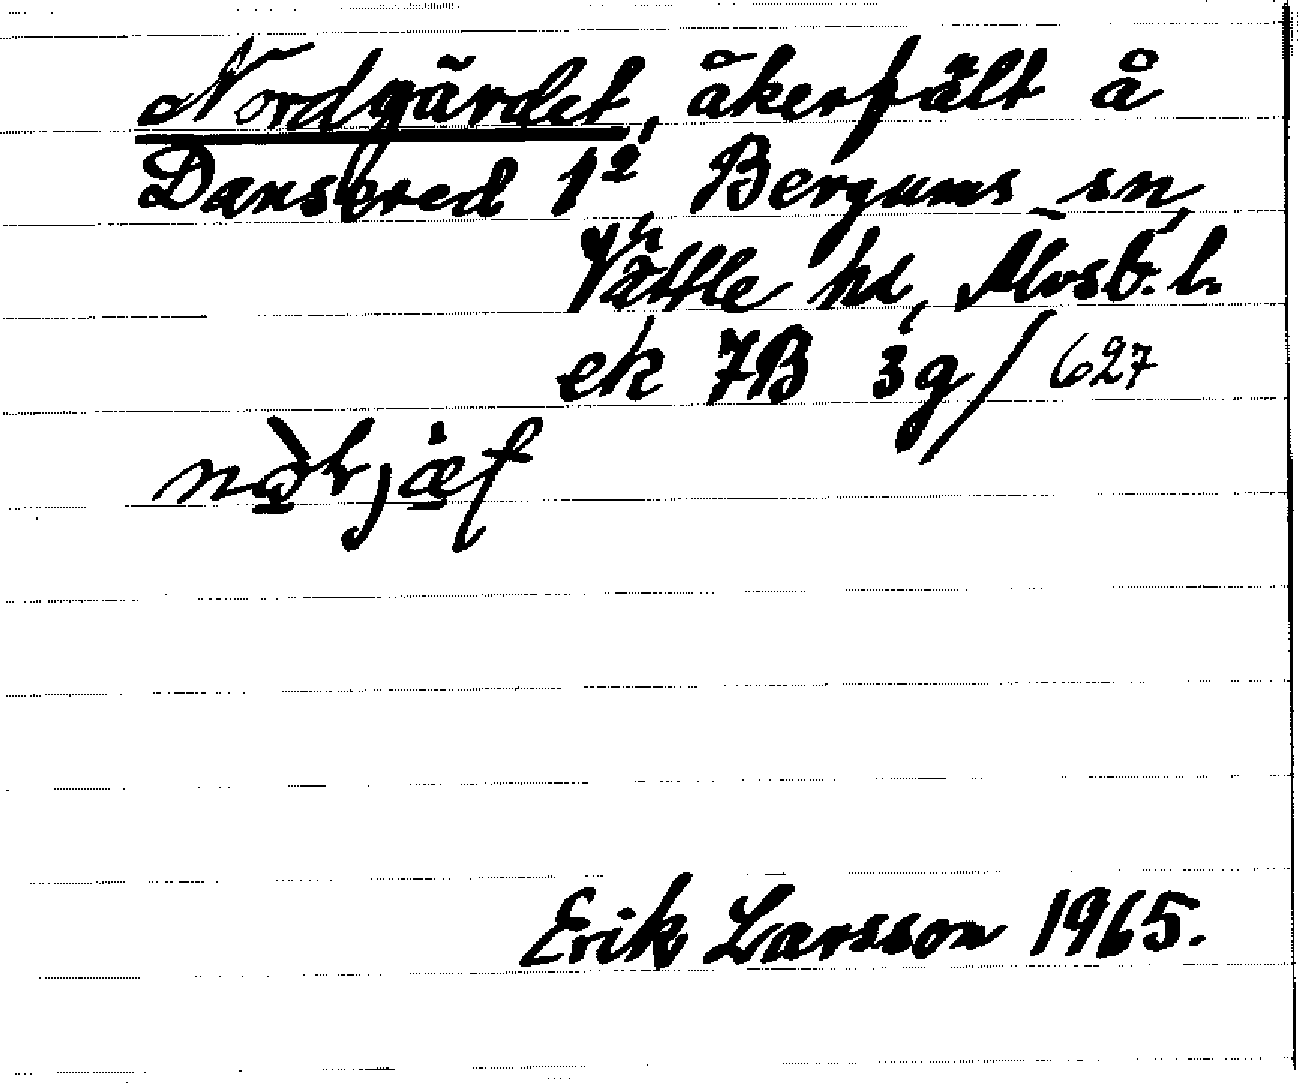 Nordgärdet, åkerfält å
Dansered 1², Bergums sn,
Vättle hd, Älvsb. l.
ek 7B 3g/627
Erik Larsson 1965.